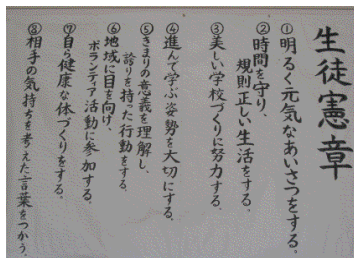 生徒憲章
①明るく元気なあいさつをする。
②時間を守り、
規則正しい生活をする。
③美しい学校づくりに努力する。
④進んで学ぶ姿勢を大切にする。
⑤きまりの意義を理解し、
誇りを持った行動をする。
⑥地域に目を向け、
ボランティア活動に参加する。
⑦自ら健康な体づくりをする。
⑧相手の気持ちを考えた言葉をつかう。